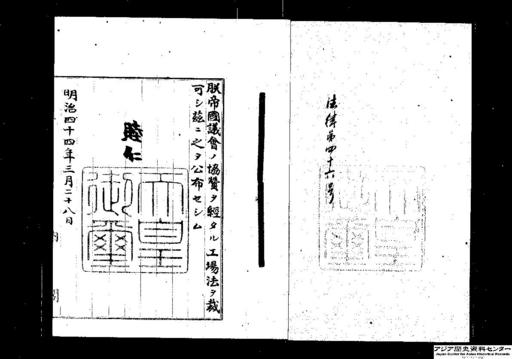 法律第四十六号
朕帝國議會ノ協賛ヲ經タル工場法ヲ裁
可シ茲ニ之ヲ公布セシム
睦仁
天皇
御璽
明治四十四年三月二十八日
内閣
アジア歴史資料センター
Japan Center for Asian Historical Records